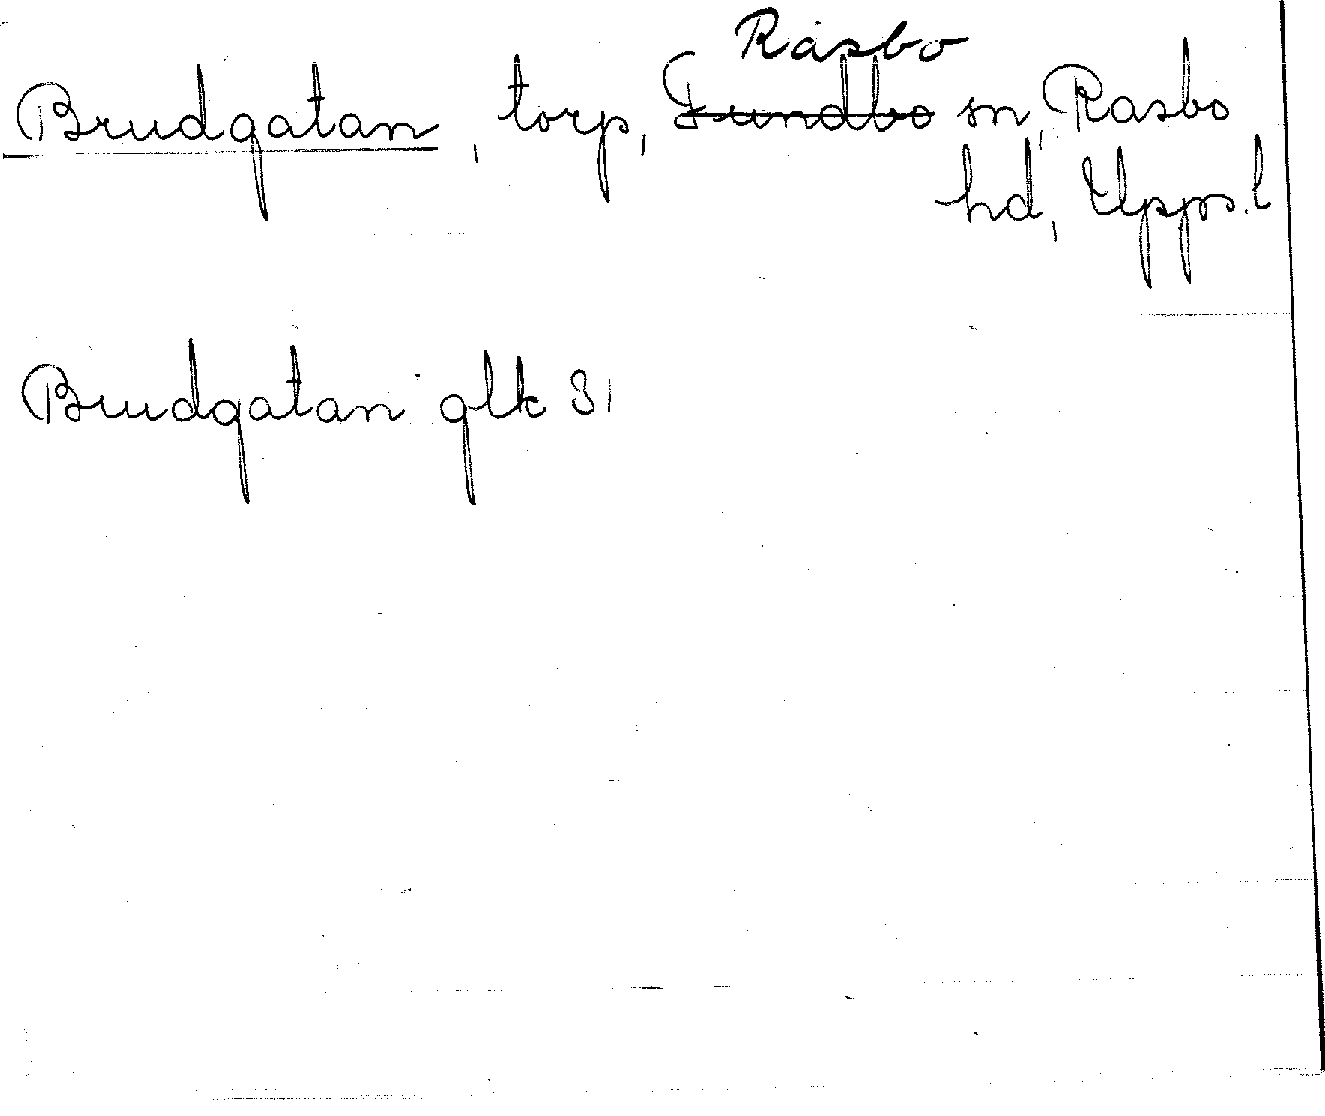 Rasbo
Brudgatan, torp, Fundbo sn, Rasbo
hd, Upps. l
Brudgatan glk 31